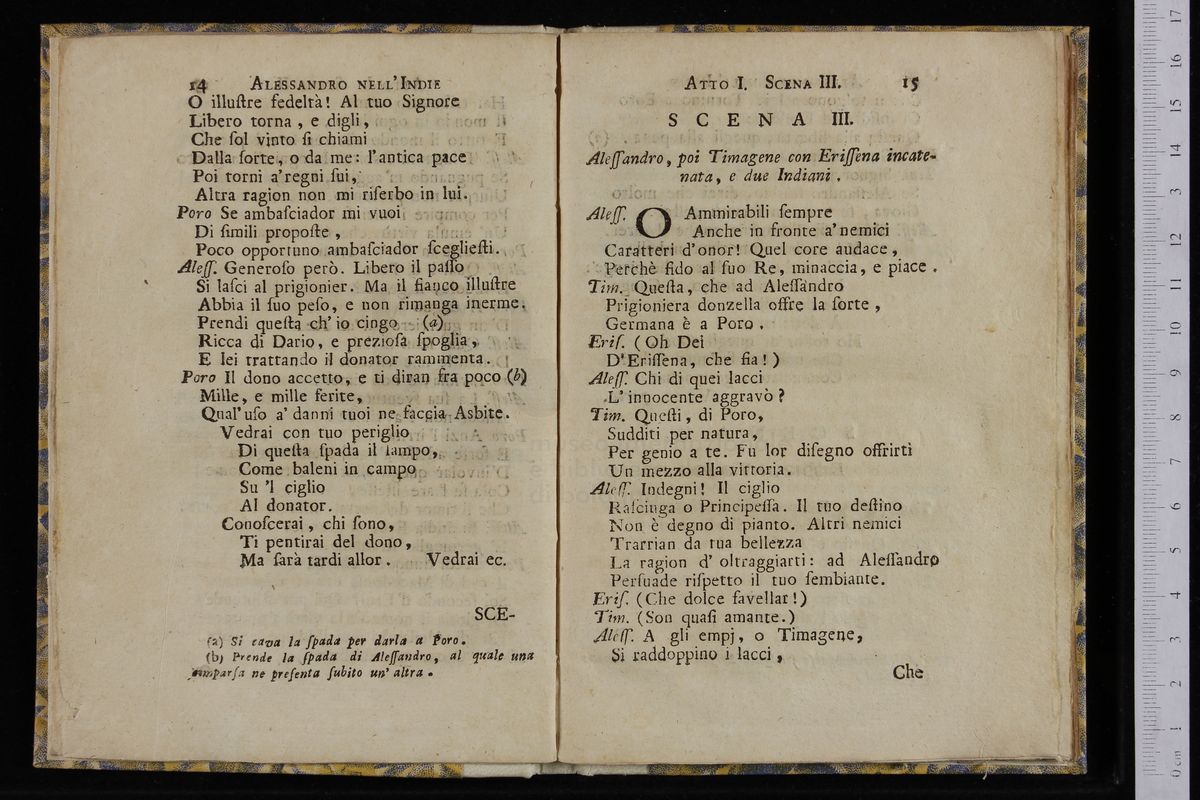 14 ALESSANDRO NELL'INDIE
O illuſtre fedeltà! Al tuo Signore
Libero torna, e digli,
Che ſol vinto ſi chiami
Dalla ſorte, o da me: l'antica pace
Poi torni a'regni ſui,
Altra ragion non mi riſerbo in lui.
Poro Se ambaſciador mi vuoi
Di ſimili propoſte,
Poco opportuno ambaſciador ſceglieſti.
Aleſſ. Generoſo però. Libero il paſſo
Si laſci al prigionier. Ma il fianco illuſtre
Abbia il ſuo peſo, e non rimanga inerme.
Prendi queſta ch' io cingo (a)
Ricca di Dario, e prezioſa ſpoglia,
E lei trattando il donator rammenta.
Poro Il dono accetto, e ti diran fra poco (b)
Mille, e mille ferite,
Qual' uſo a' danni tuoi ne faccia Asbite.
Vedrai con tuo periglio
Di queſta ſpada il lampo,
Come baleni in campo
Su 'l ciglio
Al donator.
Conoſcerai, chi ſono,
Ti pentirai del dono,
Ma ſarà tardi allor. Vedrai ec.
SCE-
(a) Si cava la ſpada per darla a Poro.
(b) Prende la ſpada di Aleſſandro, al quale una
comparſa ne preſenta ſubito un' altra.
ATTO I. SCENA III. 15
SCENA III.
Aleſſandro, poi Timagene con Eriſſena incate-
nata, e due Indiani.
Aleſſ. O Ammirabili ſempre
Anche in fronte a' nemici
Caratteri d'onor! Quel core audace,
Perchè fido al ſuo Re, minaccia, e piace.
Tim. Queſta, che ad Aleſſandro
Prigioniera donzella offre la ſorte,
Germana è a Poro.
Eriſ. (Oh Dei
D'Eriſſena, che fia!)
Aleſſ. Chi di quei lacci
L'innocente aggravò?
Tim. Queſti, di Poro,
Sudditi per natura,
Per genio a te. Fu lor diſegno offrirti
Un mezzo alla vittoria.
Aleſſ. Indegni! Il ciglio
Raſciuga o Principeſſa. Il tuo deſtino
Non è degno di pianto. Altri nemici
Trarrian da tua bellezza
La ragion d' oltraggiarti: ad Aleſſandro
Perſuade riſpetto il tuo ſembiante.
Eriſ. (Che dolce favellar!)
Tim. (Son quaſi amante.)
Aleſſ. A gli empj, o Timagene,
Si raddoppino i lacci,
Che